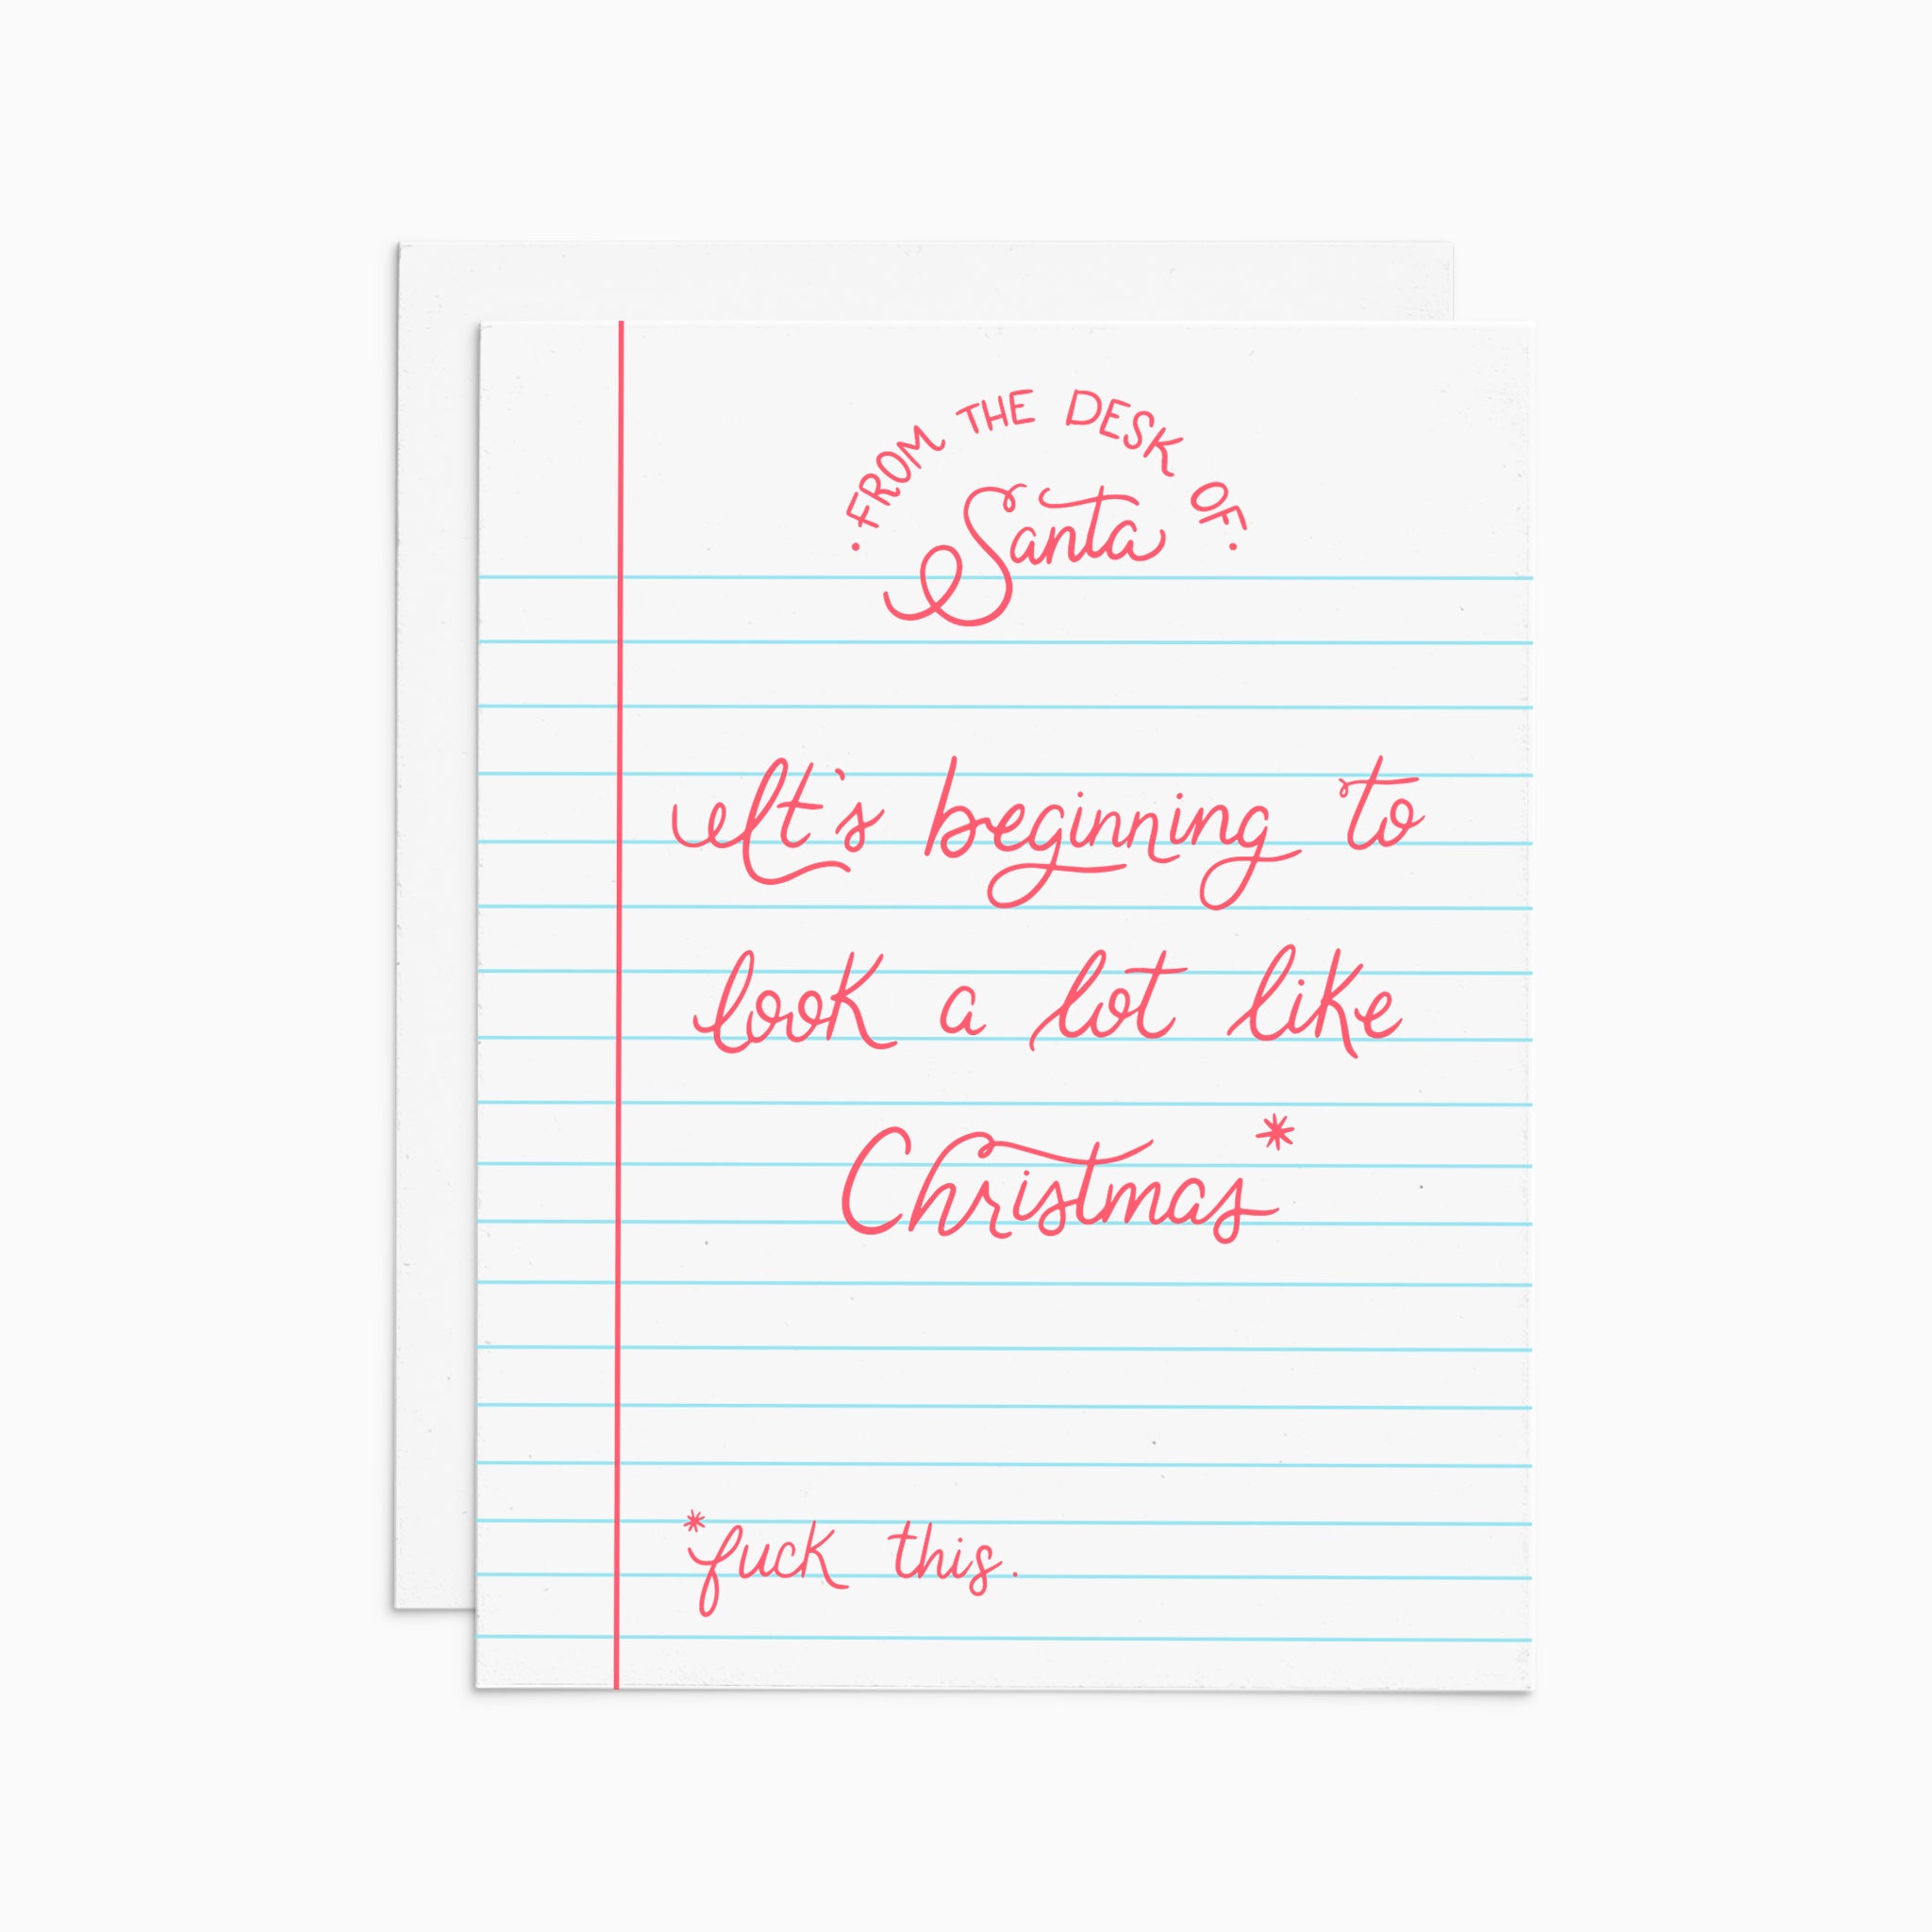 • FROM THE DESK OF •
Santa
It's beginning to
look a lot like
Christmas*
*fuck this.